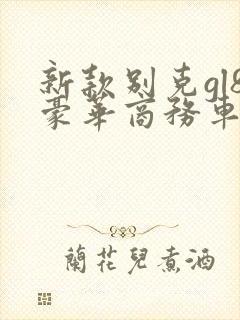 新款别克gl8
豪华商务车
蘭花兒煮酒